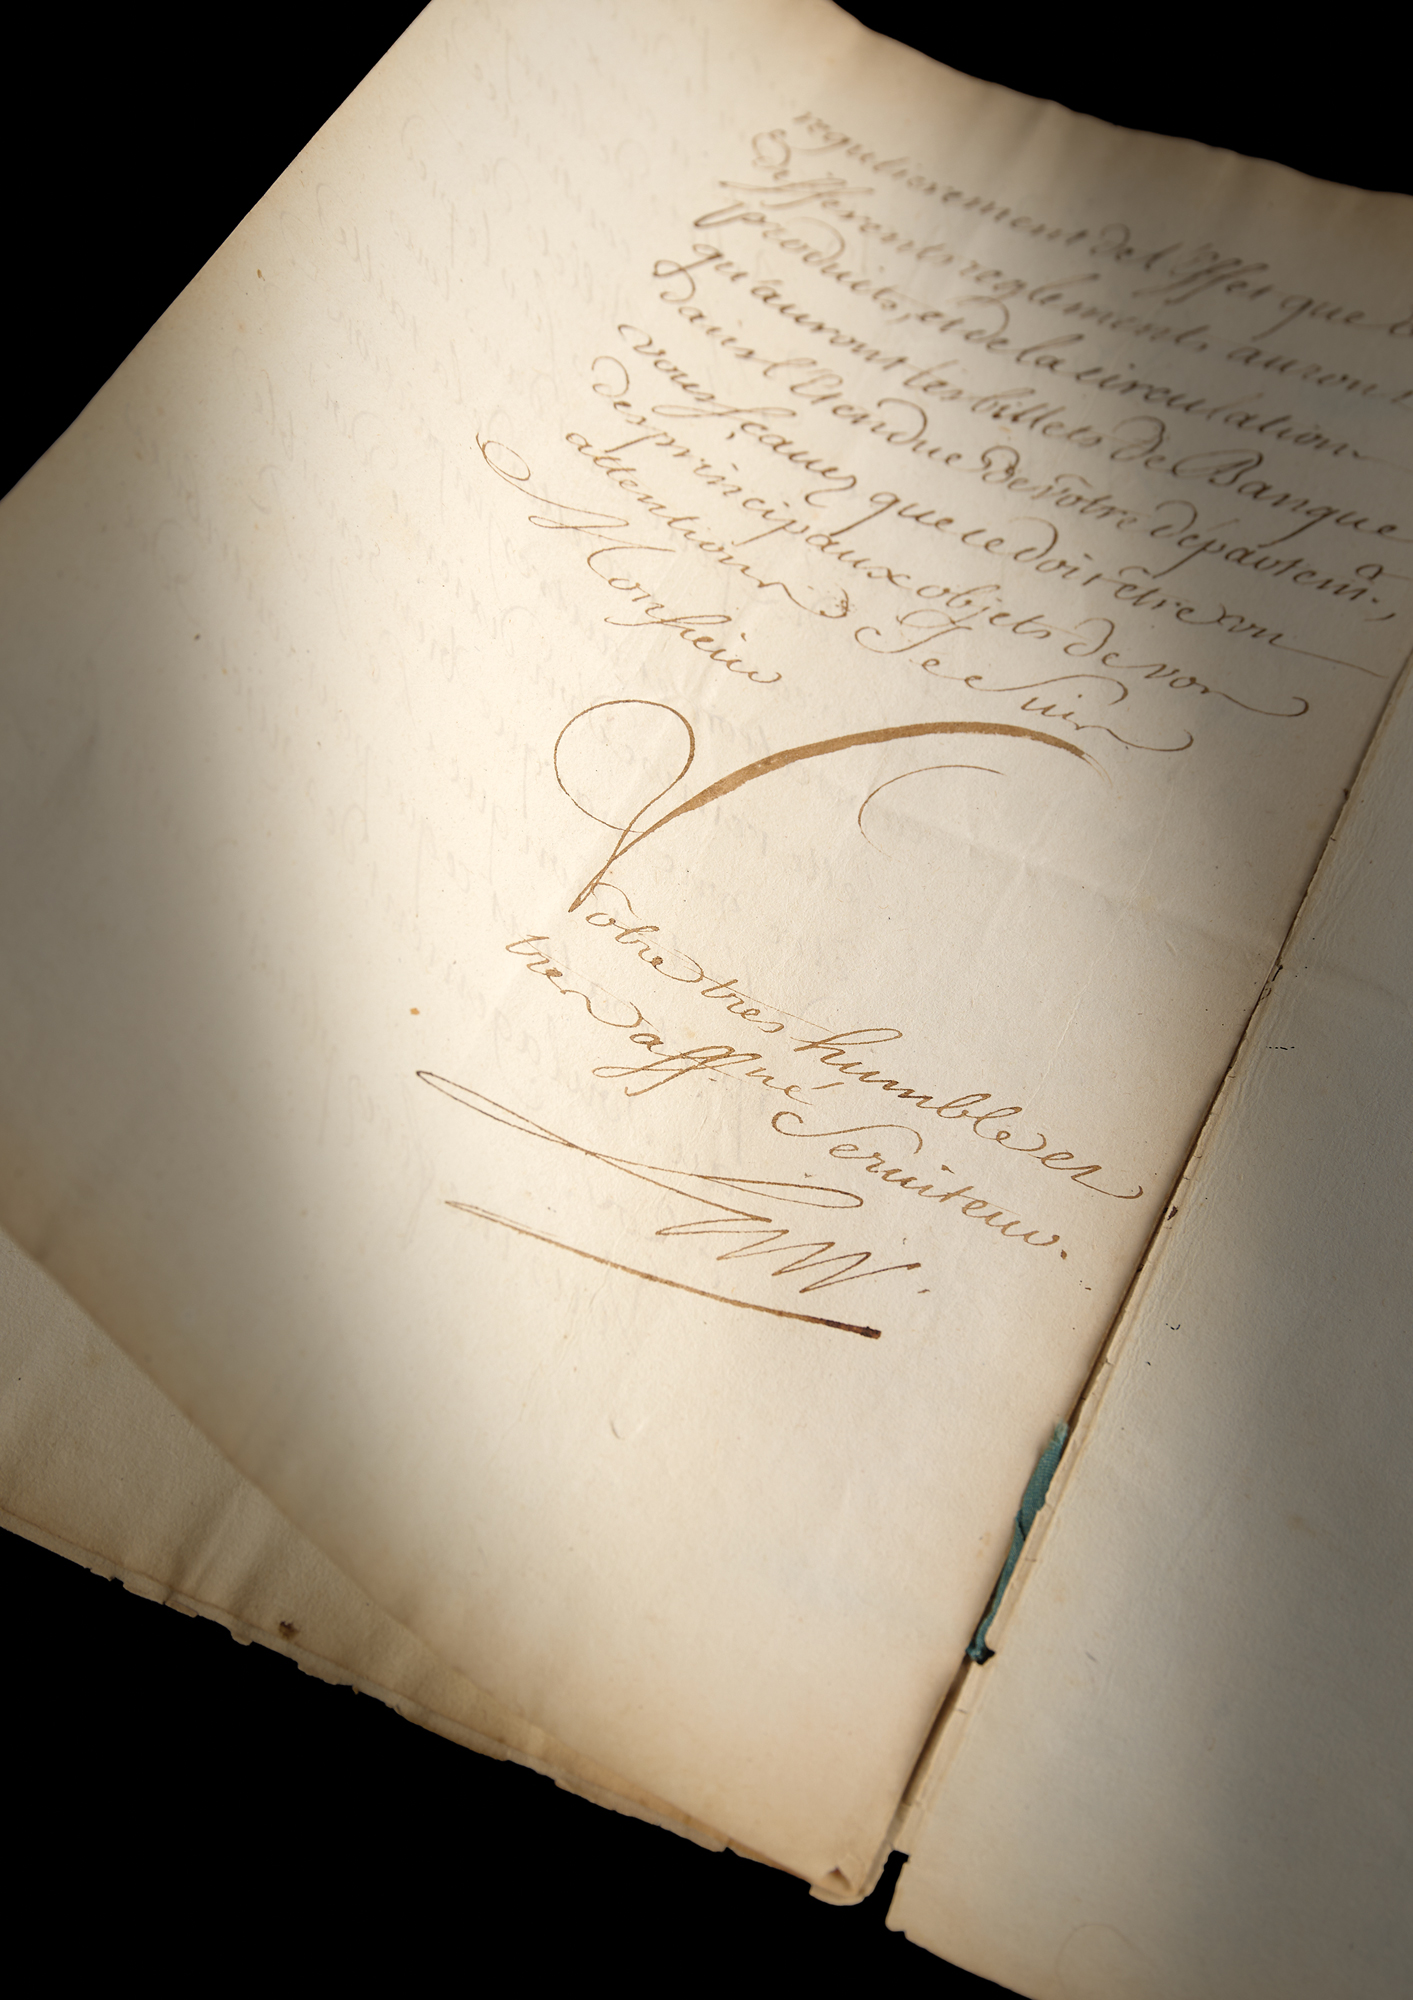 regulierement de l'Effet que les
differents reglements auront
produits, et de la circulation
qu'auront les billets de Banque
dans l'Etendue de vôtre departem.t,
vous scavez que ce doit être un
des principaux objets de vos
attentions Je suis
Monsieur
Vôtre tres humble et
tres affné Seruiteur.